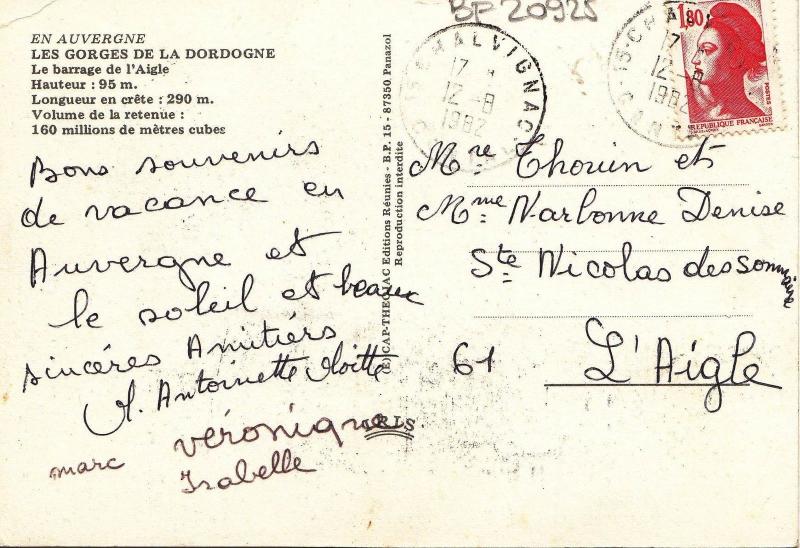 EN AUVERGNE
LES GORGES DE LA DORDOGNE
Le barrage de l'Aigle
Hauteur : 95 m.
Longueur en crête : 290 m.
Volume de la retenue :
160 millions de mètres cubes
Bons souvenirs
de vacance en
Auvergne et
le soleil et beaux
sincéres Amitiérs
Antoinette
marc véronique
Isabelle
(E) CAP-THEOJAC Editions Réunies - B.P. 15 - 87350 Panazol
Reproduction interdite
IRIS
BP 20925
15-CHALVIGNAC
17 H
12-8
1982
15-CHA
17
12-8
1982
1,80
POSTES
REPUBLIQUE FRANÇAISE
Mre Thouin et
Mme Narbonne Denise
Ste Nicolas des Sommaire
61 L'Aigle